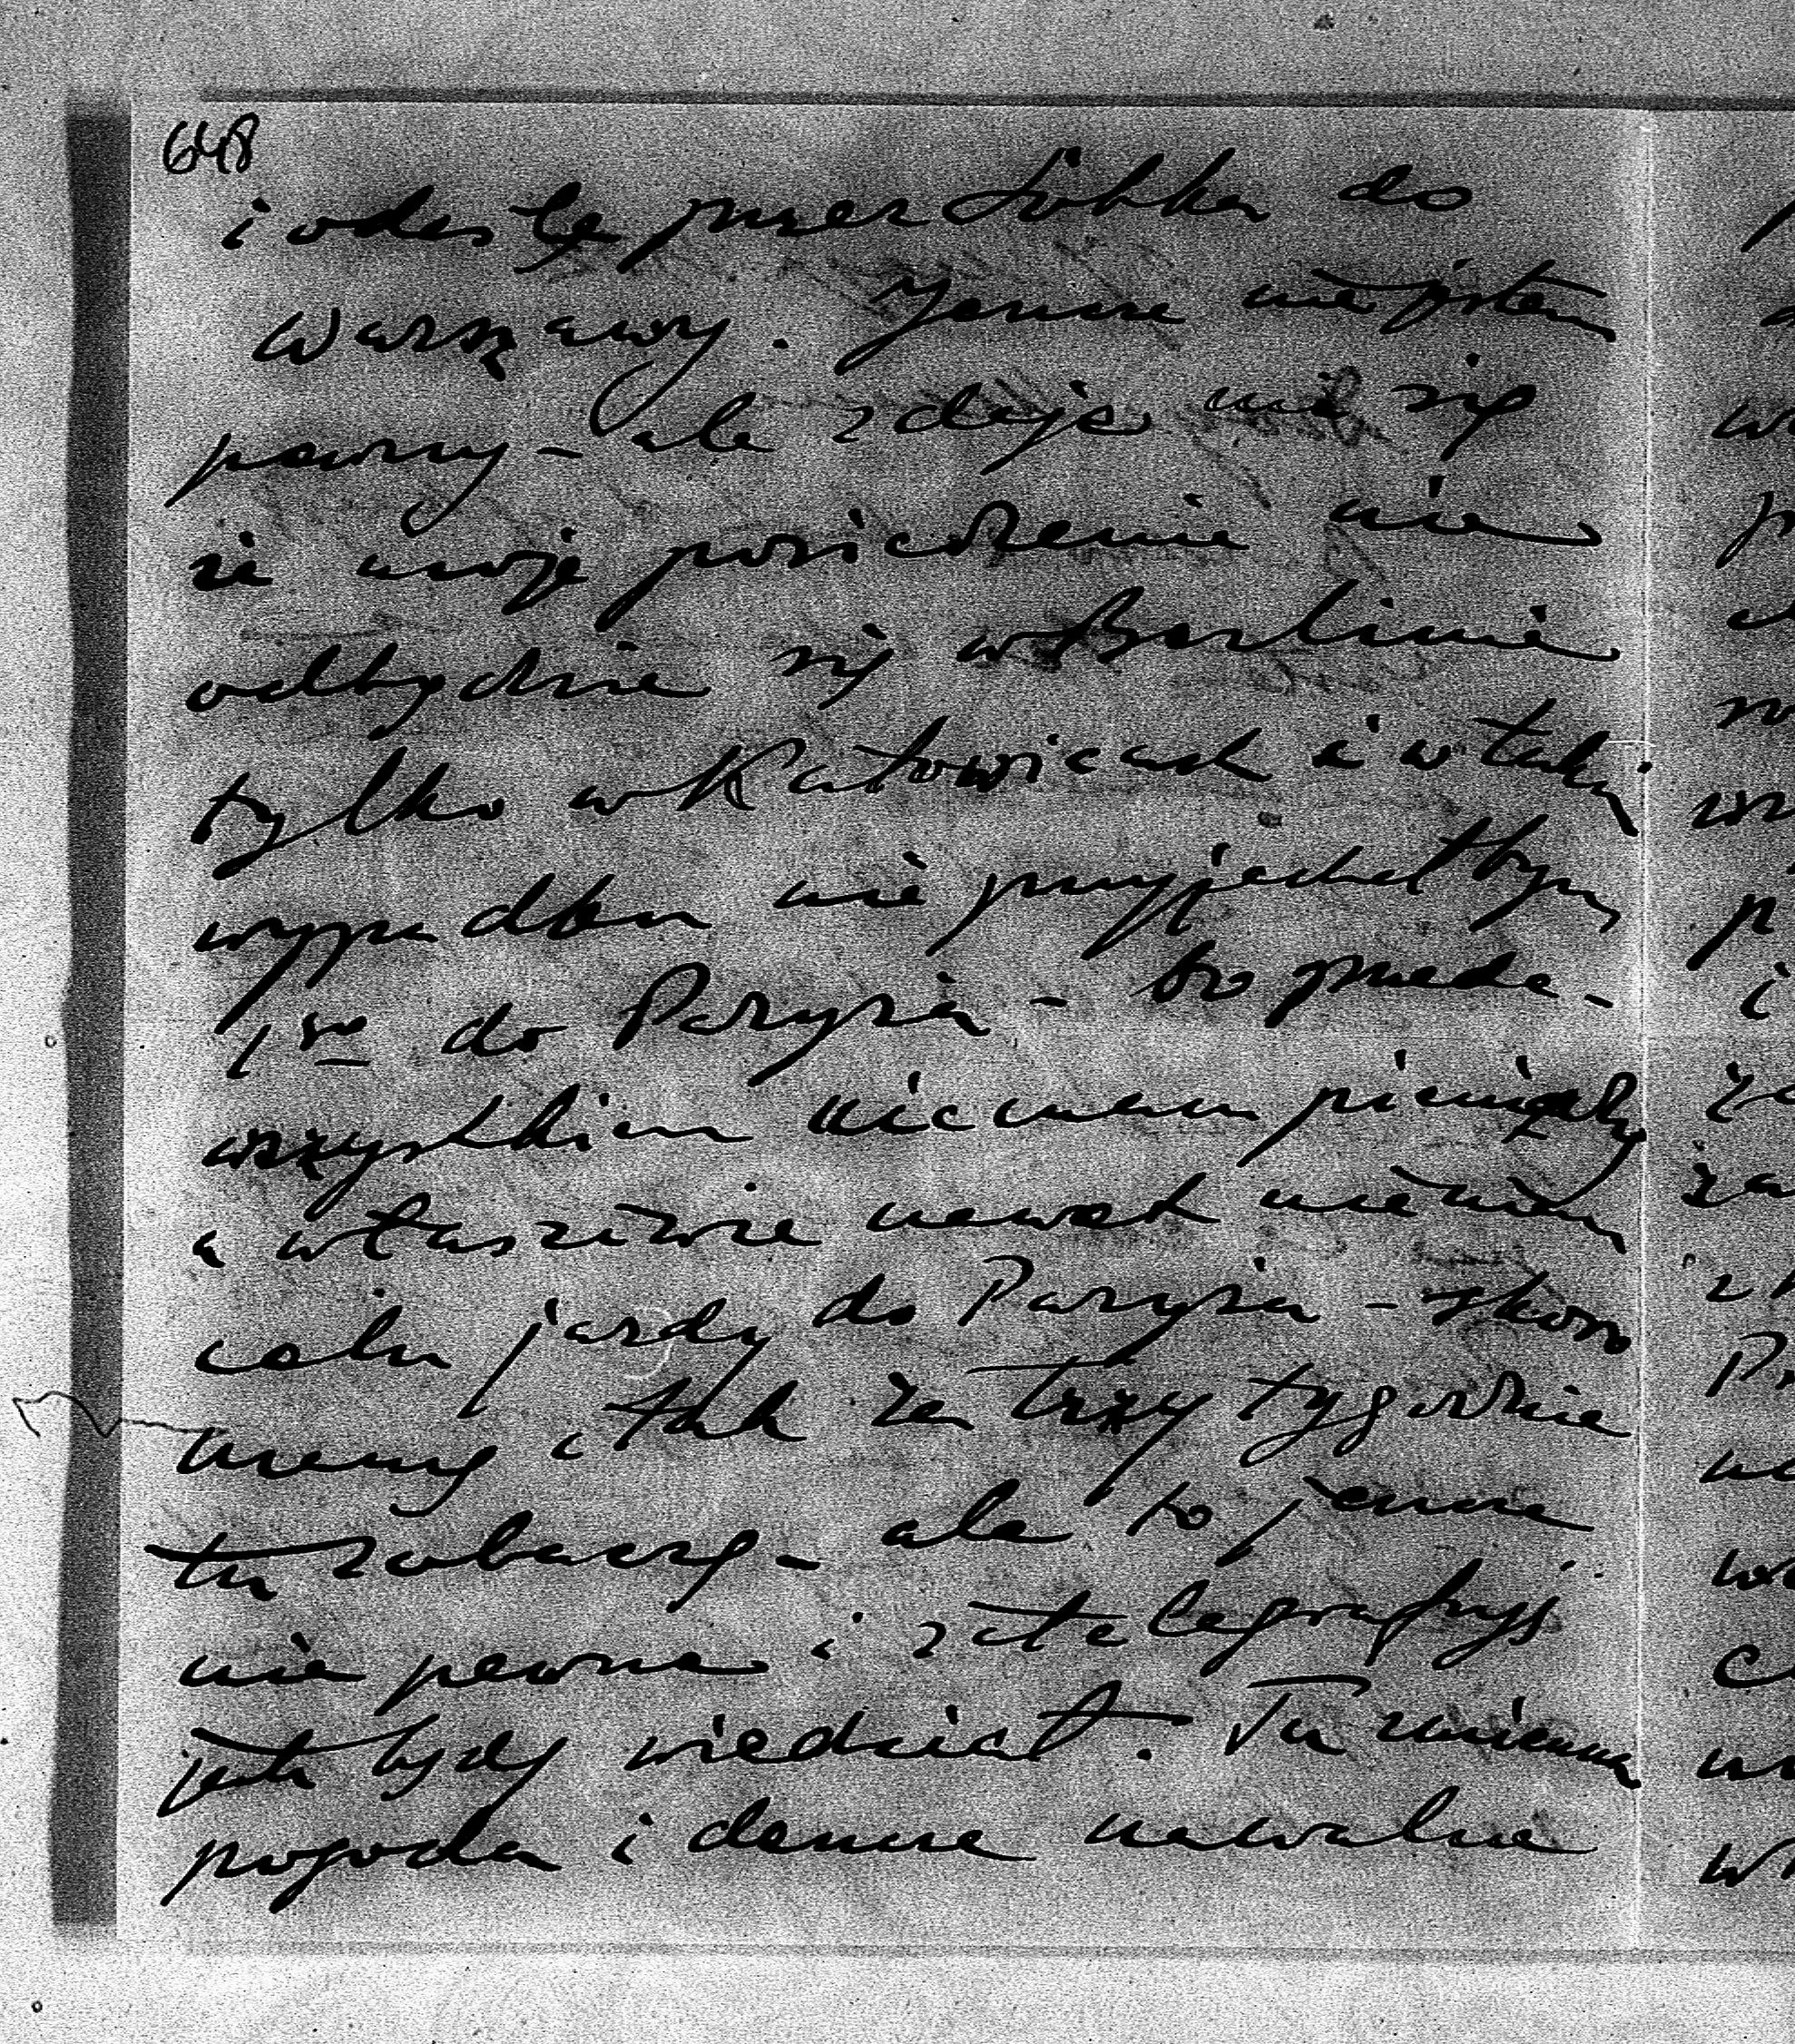 648
i odeślę przez Łubka do
Warszawy. Jeszcze nie jestem
pewny - ale zdaje mi się
że moje posiedzenie nie
odbędzie się w Berlinie
tylko w Katowicach i w takim
wypadku nie przyjechałbym
1vo do Paryża - bo przede-
wszystkim nie mam pieniędzy
a właściwie nawet nie mam
celu jazdy do Paryża - skoro
mamy i tak za trzy tygodnie
tu zobaczę - ale to jeszcze
nie pewne i zatelegrafuję
jak będę wiedział. Tu zmienna
pogoda i deszcze nawalne